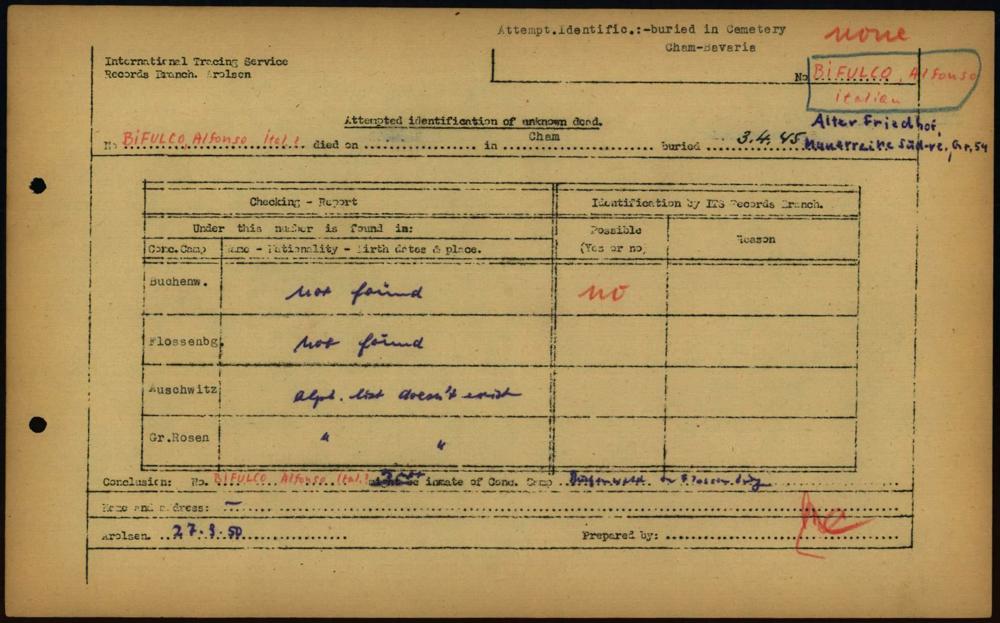 Attempt.Identific.:-buried in Cemetery
Cham-Bavaria
none
International Tracing Service
Records Branch. Arolsen
No BiFULCO, Alfonso
italien
Attempted identification of unknown dead.
Alter Friedhof,
No BiFULCO, Alfonso Ital.! died on in Cham buried 3.4.45 Süd-re, Gr.54
Checking - Report
Identification by ITS Records Branch.
Under this number is found in:
Possible
(Yes or no)
Reason
Conc.Camp
Name - Nationality - Birth dates & place.
Buchenw.
not found
no
Flossenbg.
not found
Auschwitz
alph. list doesn't exist
Gr.Rosen
" "
Conclusion: No. BIFULCO Alfonso Ital.! inmate of Conc. Camp Buchenwald or Flossenbürg
Name and address: —
Arolsen. 27.3.50 Prepared by: